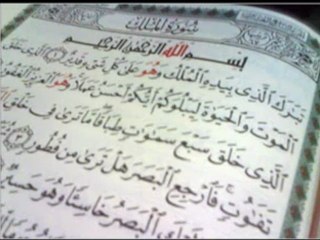 سُورَةُ الْمُلْكِ
بِسْمِ اللَّهِ الرَّحْمَٰنِ الرَّحِيمِ
تَبَارَكَ الَّذِي بِيَدِهِ الْمُلْكُ وَهُوَ عَلَىٰ كُلِّ شَيْءٍ قَدِيرٌ الَّذِي خَلَقَ
الْمَوْتَ وَالْحَيَاةَ لِيَبْلُوَكُمْ أَيُّكُمْ أَحْسَنُ عَمَلًا وَهُوَ الْعَزِيزُ الْغَفُورُ
الَّذِي خَلَقَ سَبْعَ سَمَاوَاتٍ طِبَاقًا مَا تَرَىٰ فِي خَلْقِ
تَفَاوُتٍ فَارْجِعِ الْبَصَرَ هَلْ تَرَىٰ مِنْ فُطُورٍ
الْبَصَرُ خَاسِئًا وَهُوَ حَسِيرٌ